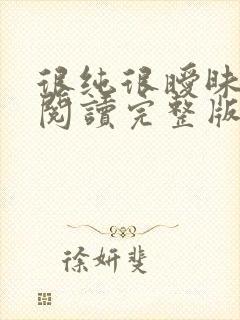 很纯很曖昧
閱讀完整版
徐妍斐